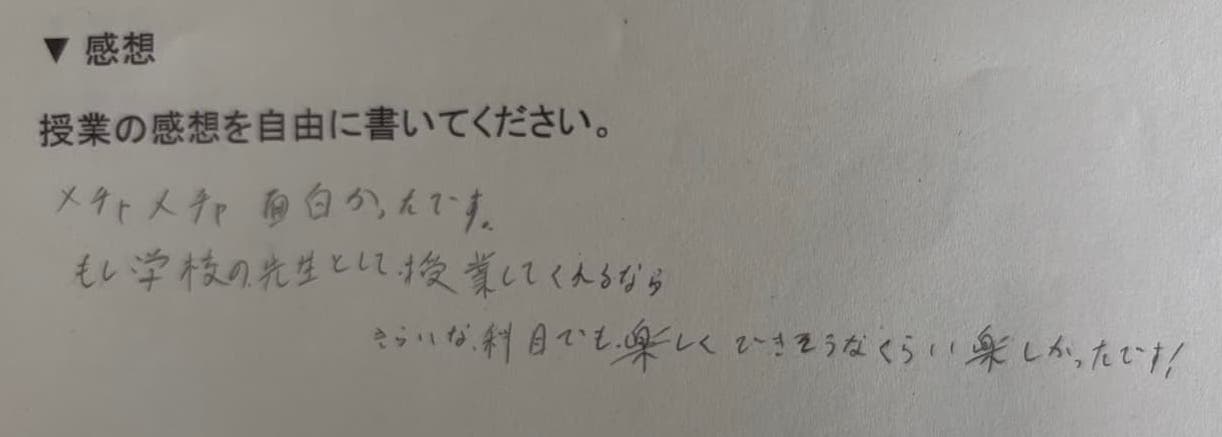 ▼ 感想
授業の感想を自由に書いてください。
メチャメチャ面白かったです。
もし学校の先生として授業してくれるなら
きらいな科目でも楽しくできそうなくらい楽しかったです!